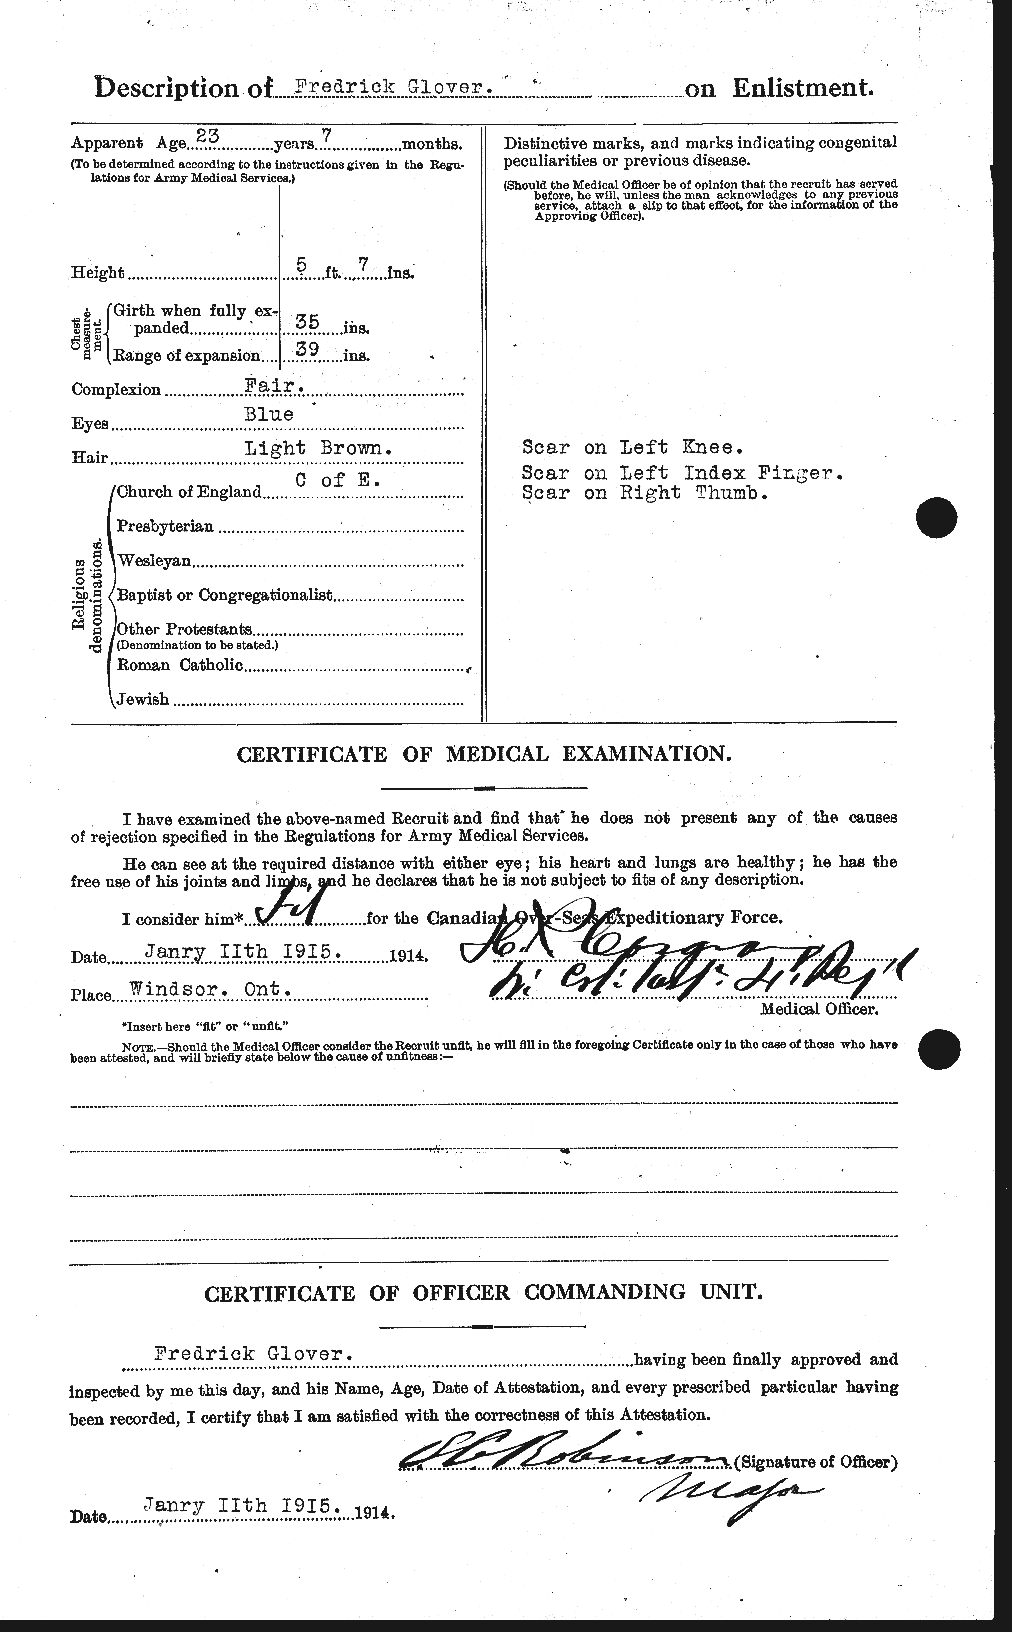 Description of Fredrick Glover. on Enlistment.
Apparent Age 23 years 7 months.
(To be determined according to the instructions given in the Regu-
lations for Army Medical Services.)
Height 5 ft. 7 ins.
Chest measure-ment.
Girth when fully ex-
panded 35 ins.
Range of expansion 39 ins.
Complexion Fair.
Eyes Blue
Hair Light Brown.
Religious denominations.
Church of England C of E.
Presbyterian
Wesleyan
Baptist or Congregationalist
Other Protestants
(Denomination to be stated.)
Roman Catholic
Jewish
Distinctive marks, and marks indicating congenital
peculiarities or previous disease.
(Should the Medical Officer be of opinion that the recruit has served
before, he will, unless the man acknowledges to any previous
service, attach a slip to that effect, for the information of the
Approving Officer).
Scar on Left Knee.
Scar on Left Index Finger.
Scar on Right Thumb.
CERTIFICATE OF MEDICAL EXAMINATION.
I have examined the above-named Recruit and find that he does not present any of the causes
of rejection specified in the Regulations for Army Medical Services.
He can see at the required distance with either eye; his heart and lungs are healthy; he has the
free use of his joints and limbs, and he declares that he is not subject to fits of any description.
I consider him* Fit for the Canadian Over-Seas Expeditionary Force.
Date Janry IIth I9I5. 1914.
Place Windsor. Ont.
Medical Officer.
*Insert here "fit" or "unfit."
NOTE.—Should the Medical Officer consider the Recruit unfit, he will fill in the foregoing Certificate only in the case of those who have
been attested, and will briefly state below the cause of unfitness:—
CERTIFICATE OF OFFICER COMMANDING UNIT.
Fredrick Glover. having been finally approved and
inspected by me this day, and his Name, Age, Date of Attestation, and every prescribed particular having
been recorded, I certify that I am satisfied with the correctness of this Attestation.
Robinson (Signature of Officer)
Major
Date Janry IIth I9I5. 1914.